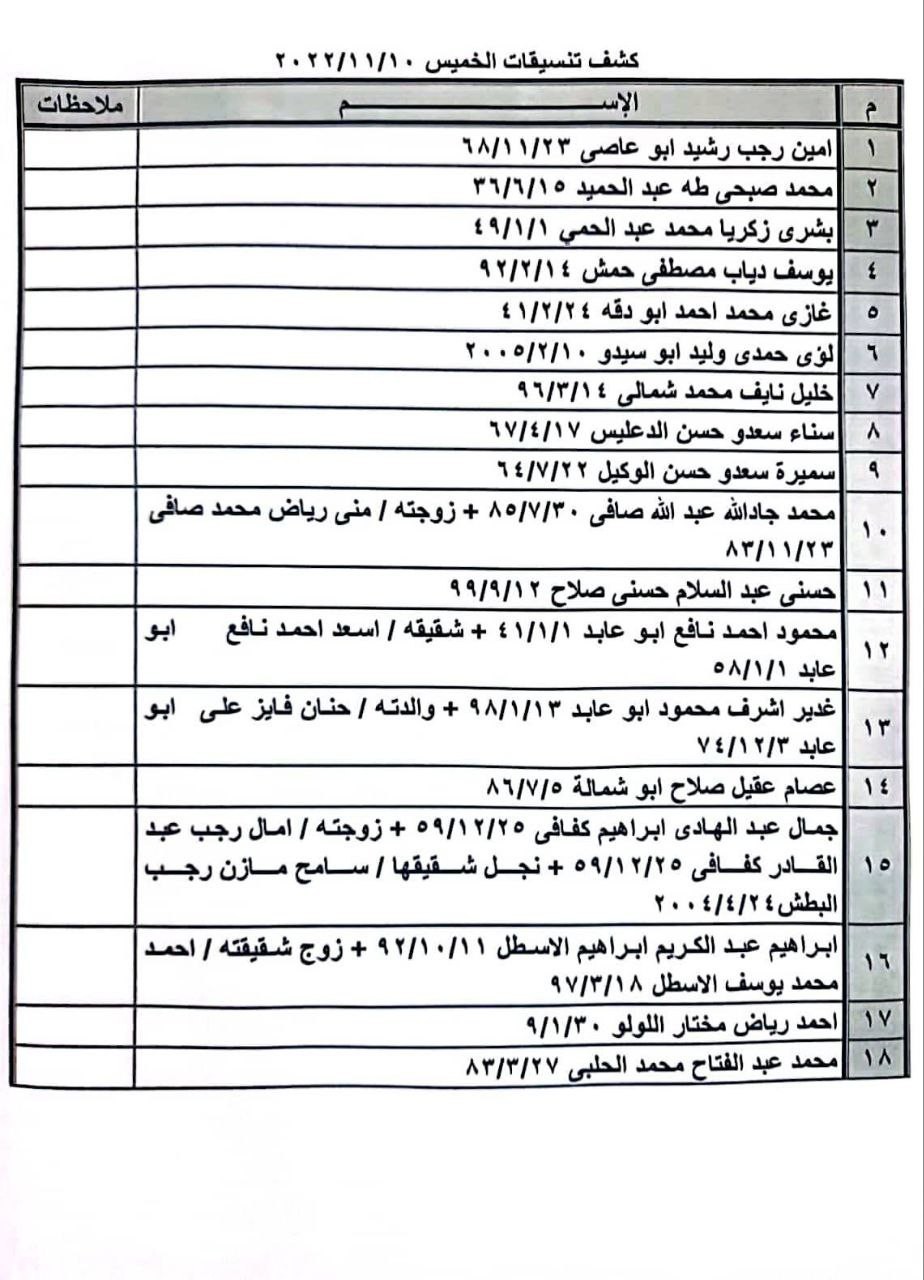 كشف تنسيقات الخميس ٢٠٢٢/١١/١٠
م الإســـــــــــم ملاحظات
١ امين رجب رشيد ابو عاصى ٦٨/١١/٢٣
٢ محمد صبحى طه عبد الحميد ٣٦/٦/١٥
٣ بشرى زكريا محمد عبد الحمي ٤٩/١/١
٤ يوسف دياب مصطفى حمش ٩٢/٢/١٤
٥ غازى محمد احمد ابو دقه ٤١/٢/٢٤
٦ لؤى حمدى وليد ابو سيدو ٢٠٠٥/٢/١٠
٧ خليل نايف محمد شمالى ٩٦/٣/١٤
٨ سناء سعدو حسن الدعليس ٦٧/٤/١٧
٩ سميرة سعدو حسن الوكيل ٦٤/٧/٢٢
١٠ محمد جادالله عبد الله صافى ٨٥/٧/٣٠ + زوجته / منى رياض محمد صافى
٨٣/١١/٢٣
١١ حسنى عبد السلام حسنى صلاح ٩٩/٩/١٢
١٢ محمود احمد نافع ابو عابد ٤١/١/١ + شقيقه / اسعد احمد نافع ابو
عابد ٥٨/١/١
١٣ غدير اشرف محمود ابو عابد ٩٨/١/١٣ + والدته / حنان فايز على ابو
عابد ٧٤/١٢/٣
١٤ عصام عقيل صلاح ابو شمالة ٨٦/٧/٥
١٥ جمال عبد الهادى ابراهيم كفافى ٥٩/١٢/٢٥ + زوجته / امال رجب عبد
القادر كفافى ٥٩/١٢/٢٥ + نجل شقيقها / سامح مازن رجب
البطش ٢٠٠٤/٤/٢٤
١٦ ابراهيم عبد الكريم ابراهيم الاسطل ٩٢/١٠/١١ + زوج شقيقته / احمد
محمد يوسف الاسطل ٩٧/٣/١٨
١٧ احمد رياض مختار اللولو ٩/١/٣٠
١٨ محمد عبد الفتاح محمد الحلبى ٨٣/٣/٢٧